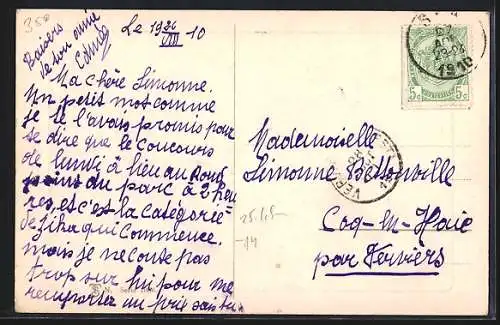 350
Baisers
de ton amie
Le 1926/VIII 10
Ma chère Simonne.
Un petit mot comme
je te l'avais promis pour
te dire que le Concours
de lundi a lieu au Rond
point du parc à 2 heu
res, et c'est la catégorie
de Zika qui commence.
mais je ne compte pas
trop sur lui pour me
remporter un prix sais-tu
Mademoiselle
Simonne
Coq-en-Haie
par Verviers
5c 5c
1910
VERV
25.1.5
-14